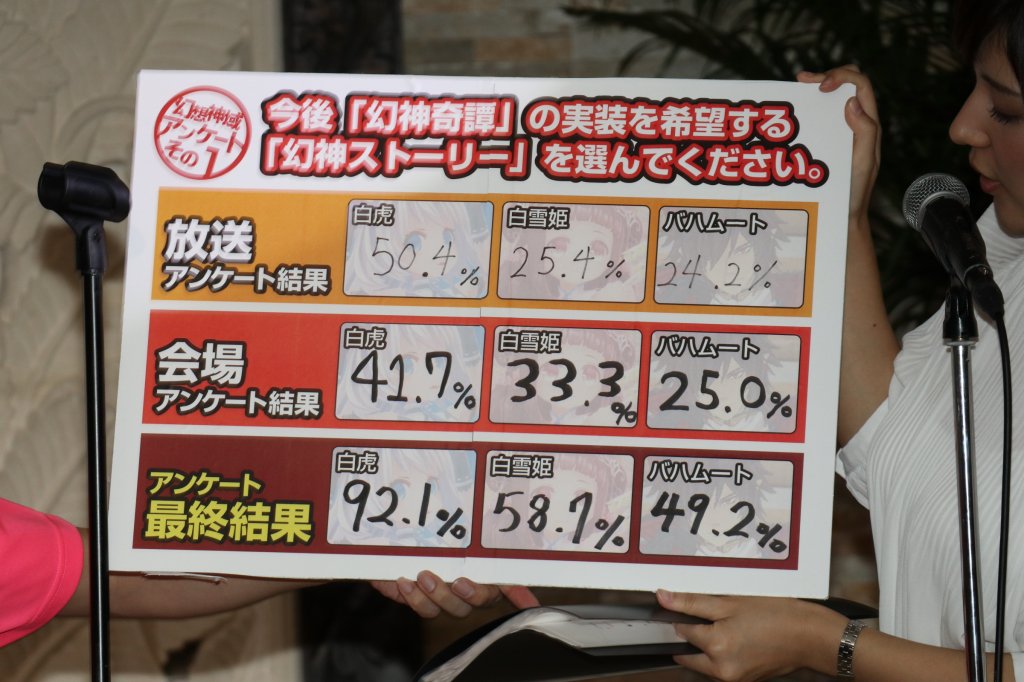 幻想神域
アンケート
その1
今後「幻神奇譚」の実装を希望する
「幻神ストーリー」を選んでください。
放送
アンケート結果
白虎
50.4%
白雪姫
25.4%
バハムート
24.2%
会場
アンケート結果
白虎
41.7%
白雪姫
33.3%
バハムート
25.0%
アンケート
最終結果
白虎
92.1%
白雪姫
58.7%
バハムート
49.2%